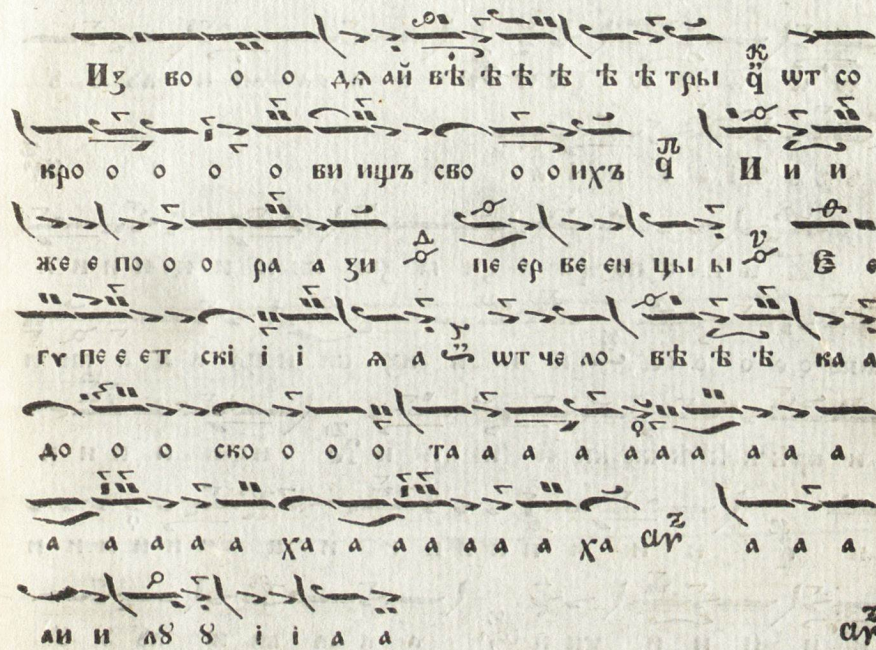 Из во о о дѧ ай вѣ ѣ ѣ ѣ ѣ ѣ тры к҃ q̈ ѡт со
кро о о о о ви ищъ сво о о ихъ п q И и и
же е е по о о ра а зи Δ пе ер ве ен цы ы ν Є е
гѵ пе е ет скі і і ѧ а ѡт че ло вѣ ѣ ѣ ка а
до о о ско о о о та а а а а а а а а а
а а а а а ха а а а а а а ха а а а
аи и лꙋ ꙋ і і а а